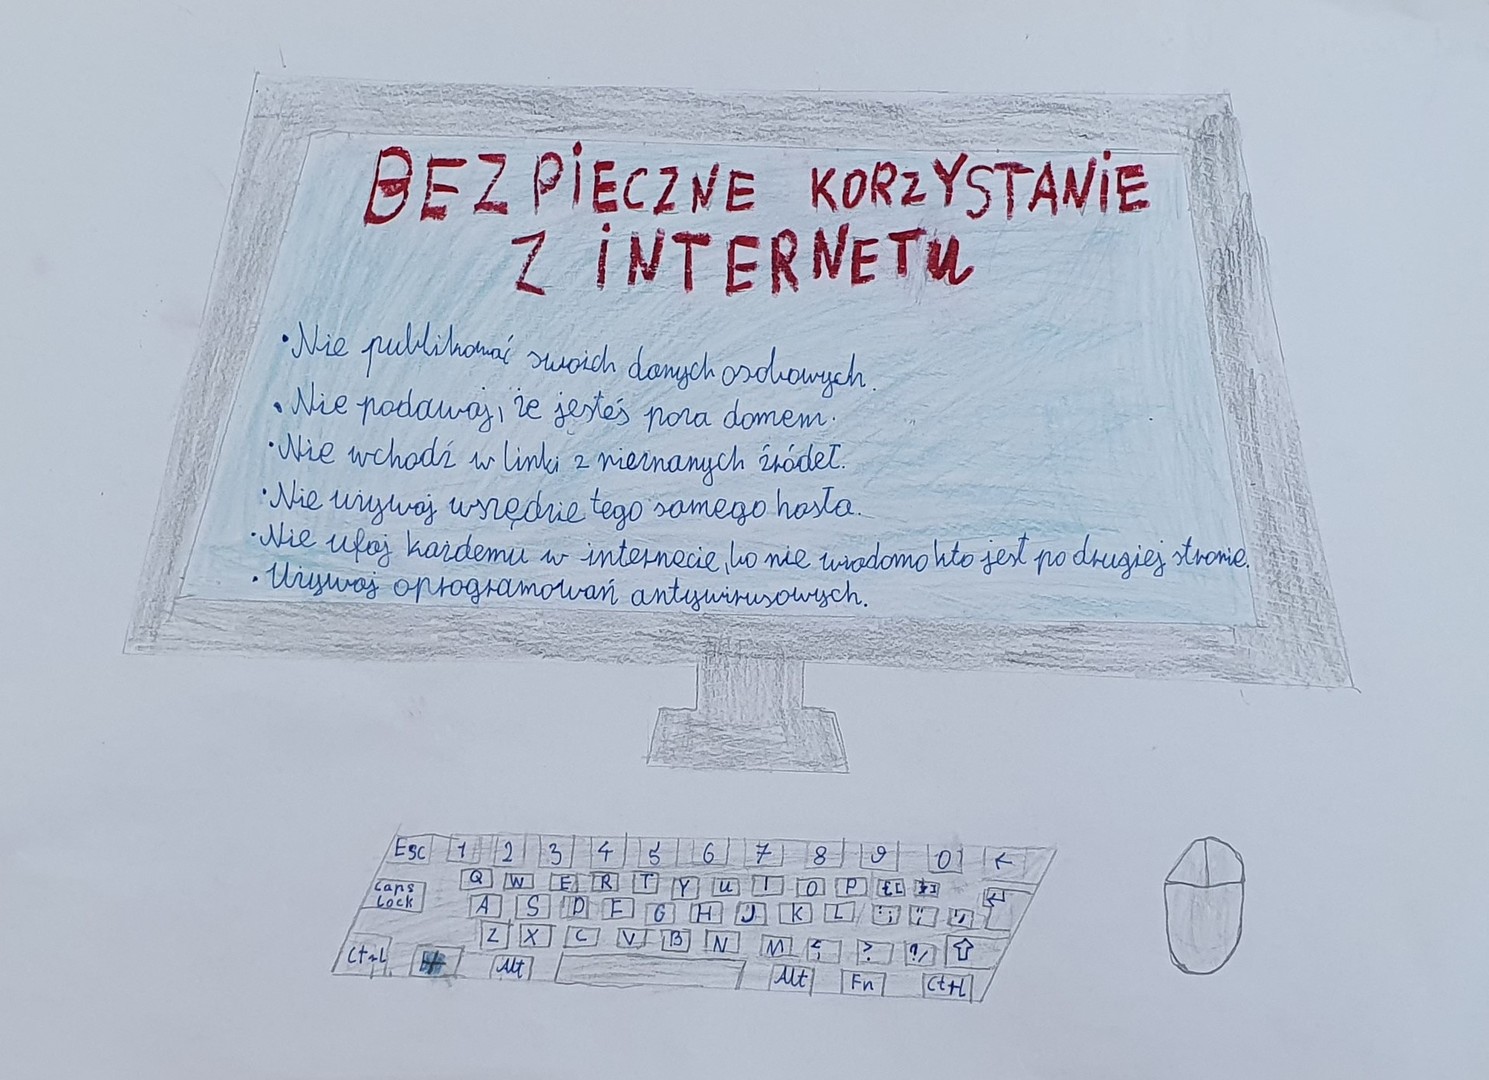 BEZPIECZNE KORZYSTANIE
Z INTERNETU
• Nie publikować swoich danych osobowych.
• Nie podawaj, że jesteś poza domem.
• Nie wchodź w linki z nieznanych źródeł.
• Nie używaj wszędzie tego samego hasła.
• Nie ufaj każdemu w internecie, bo nie wiadomo kto jest po drugiej stronie.
• Używaj oprogramowań antywirusowych.
Esc 1 2 3 4 5 6 7 8 9 0 ←
Q W E R T Y U I O P {[ }]
Caps Lock A S D F G H J K L :; "
Z X C V B N M < , > . ? / ⇧
Ctrl Alt Alt Fn Ctrl